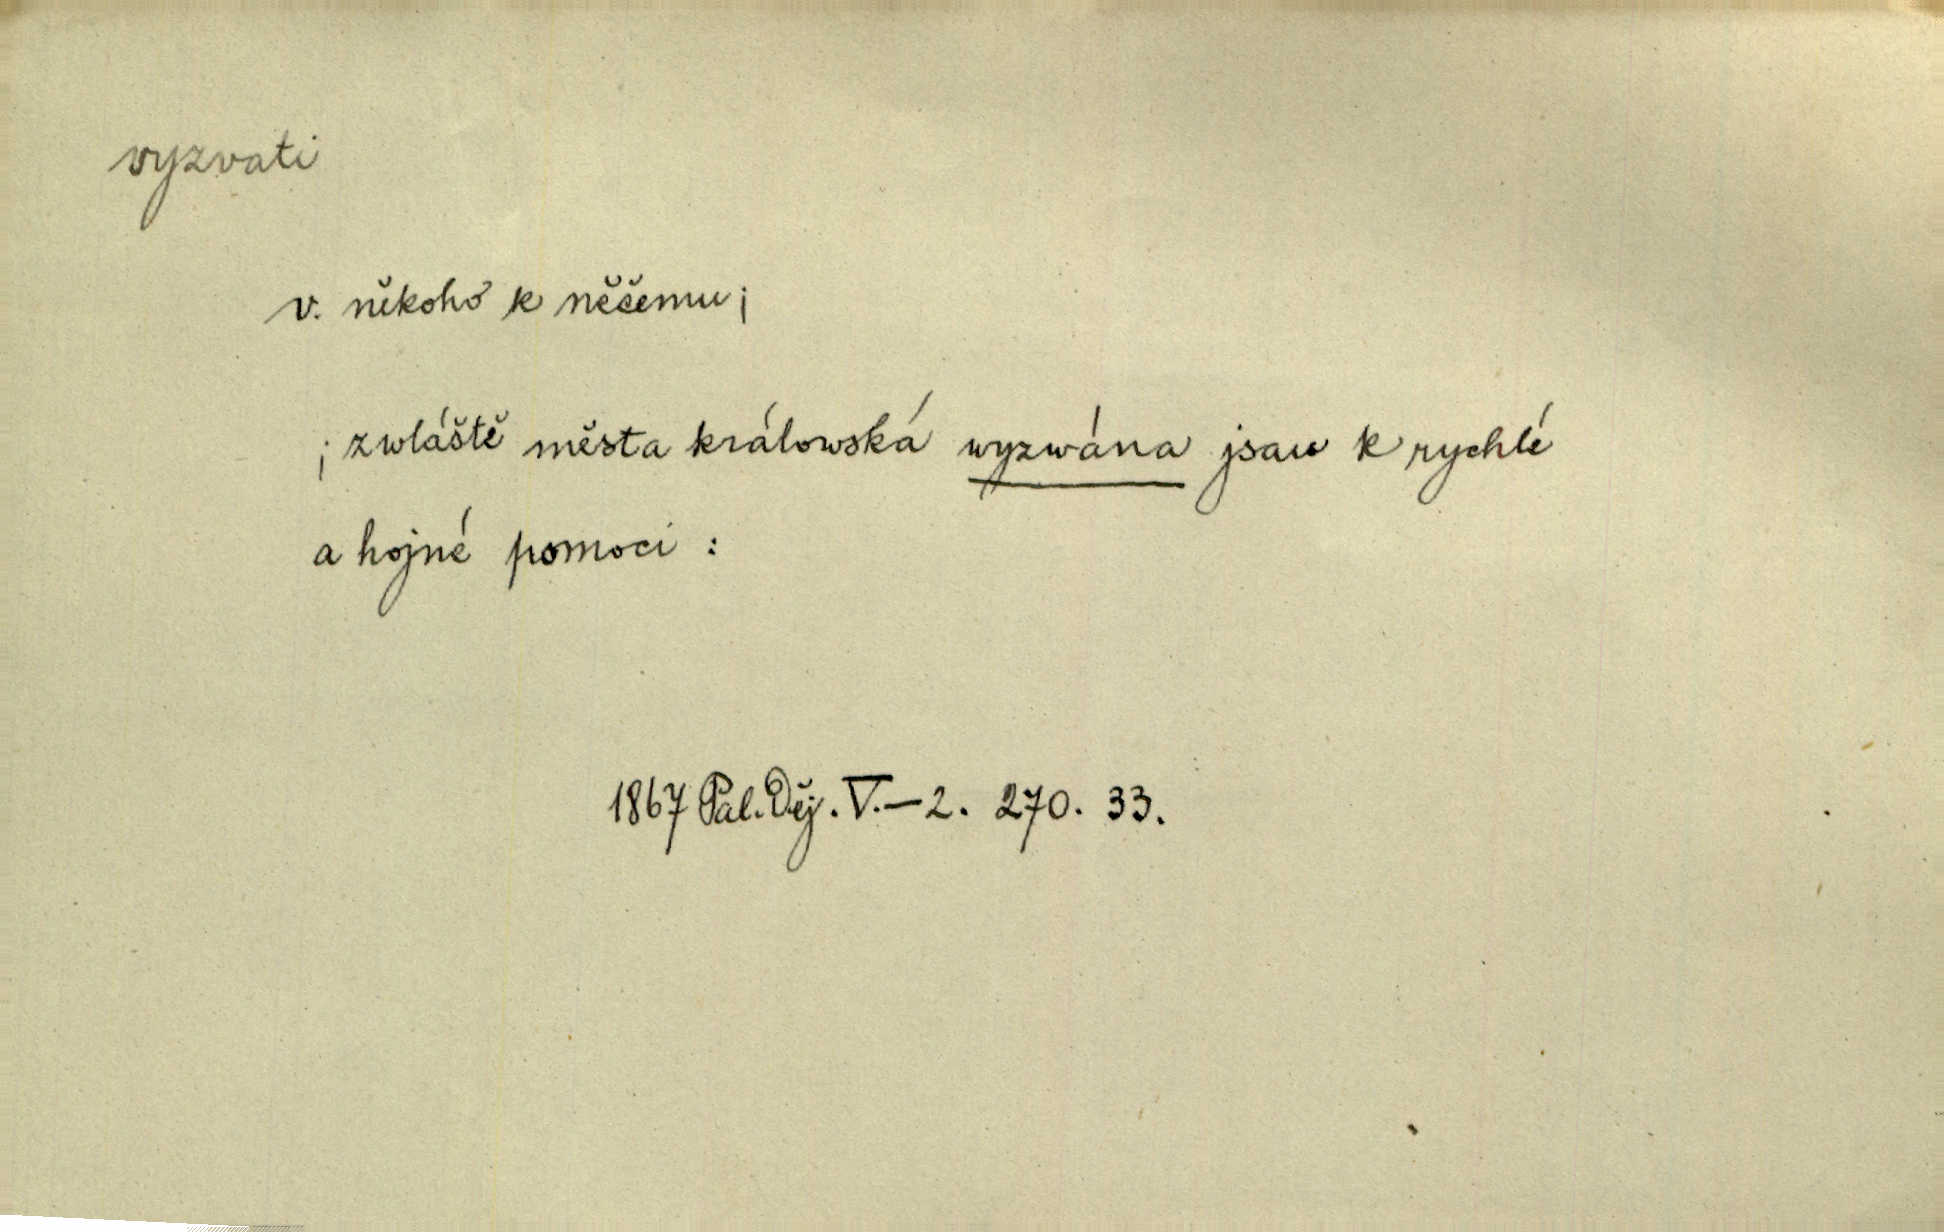 vyzvati
v. někoho k něčemu;
; zwláště města králowská wyzwána jsau k rychlé
a hojné pomoci :
1867 Pal. Děj. V.–2. 270. 33.